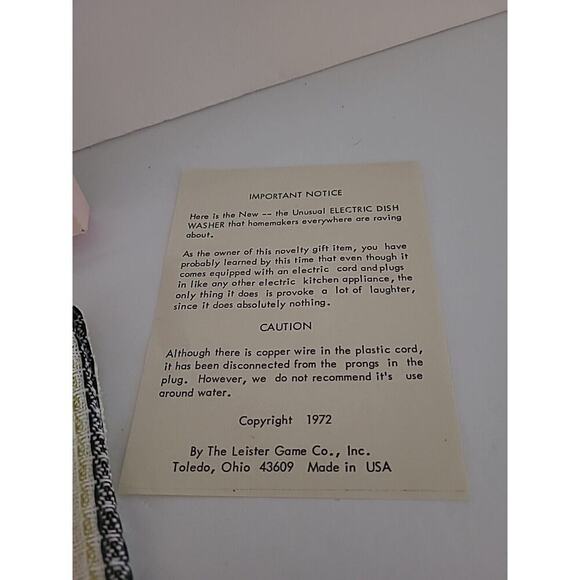 IMPORTANT NOTICE
Here is the New -- the Unusual ELECTRIC DISH
WASHER that homemakers everywhere are raving
about.
As the owner of this novelty gift item, you have
probably learned by this time that even though it
comes equipped with an electric cord and plugs
in like any other electric kitchen appliance, the
only thing it does is provoke a lot of laughter,
since it does absolutely nothing.
CAUTION
Although there is copper wire in the plastic cord,
it has been disconnected from the prongs in the
plug. However, we do not recommend it's use
around water.
Copyright 1972
By The Leister Game Co., Inc.
Toledo, Ohio 43609 Made in USA